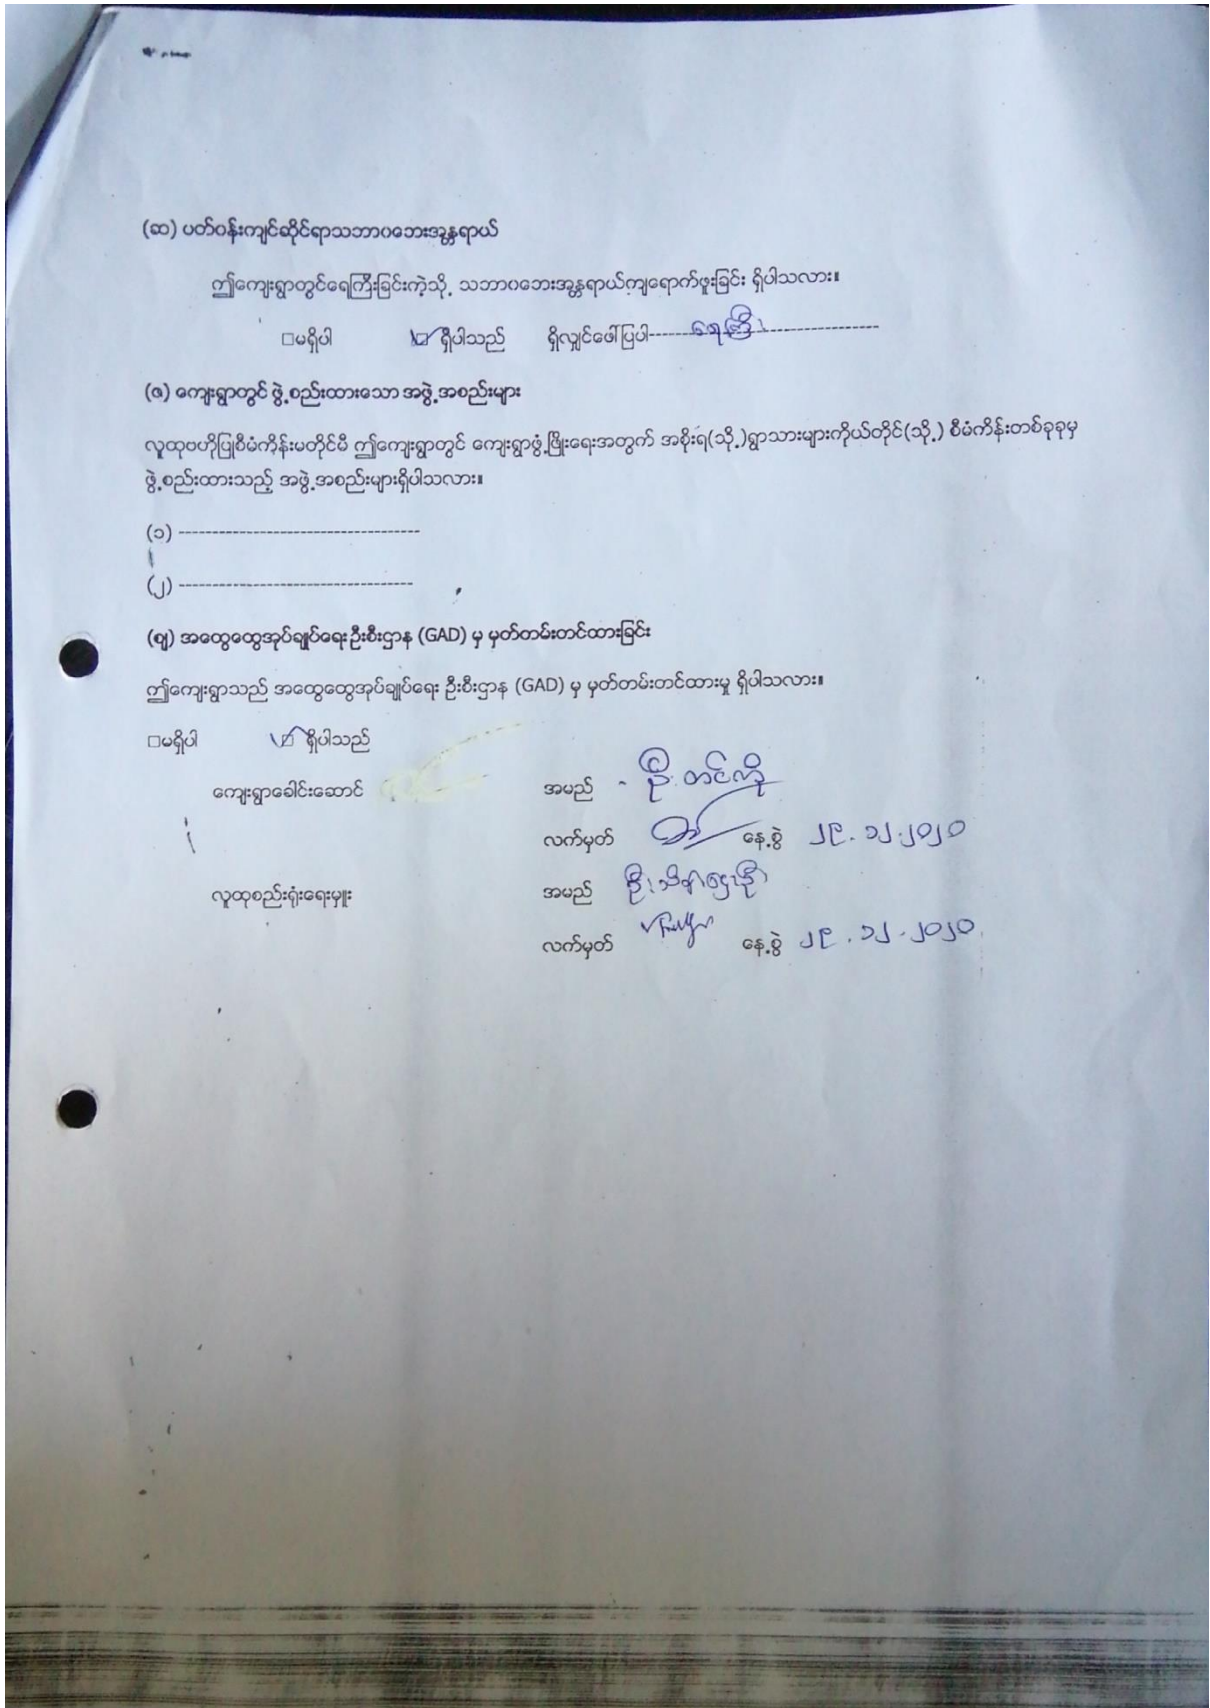 (ဆ) ပတ်ဝန်းကျင်ဆိုင်ရာသဘာဝဘေးအန္တရာယ်
ဤကျေးရွာတွင်ရေကြီးခြင်းကဲ့သို့ သဘာဝဘေးအန္တရာယ်ကျရောက်ဖူးခြင်း ရှိပါသလား။
□မရှိပါ ☑ ရှိပါသည် ရှိလျှင်ဖေါ်ပြပါ---------- ရေကြီး ----------------------
(ဇ) ကျေးရွာတွင် ဖွဲ့စည်းထားသော အဖွဲ့အစည်းများ
လူထုဗဟိုပြုစီမံကိန်းမတိုင်မီ ဤကျေးရွာတွင် ကျေးရွာဖွံ့ဖြိုးရေးအတွက် အစိုးရ(သို့)ရွာသားများကိုယ်တိုင်(သို့) စီမံကိန်းတစ်ခုခုမှ
ဖွဲ့စည်းထားသည့် အဖွဲ့အစည်းများရှိပါသလား။
(၁) ------------------------------------
(၂) -----------------------------------
(ဈ) အထွေထွေအုပ်ချုပ်ရေးဦးစီးဌာန (GAD) မှ မှတ်တမ်းတင်ထားခြင်း
ဤကျေးရွာသည် အထွေထွေအုပ်ချုပ်ရေး ဦးစီးဌာန (GAD) မှ မှတ်တမ်းတင်ထားမှု ရှိပါသလား။
□မရှိပါ ☑ ရှိပါသည်
ကျေးရွာခေါင်းဆောင် အမည် - ဦးတင်ကို
လက်မှတ် နေ့စွဲ ၂၉.၁၂.၂၀၂၀
လူထုစည်းရုံးရေးမှူး အမည်
လက်မှတ် နေ့စွဲ ၂၉.၁၂.၂၀၂၀